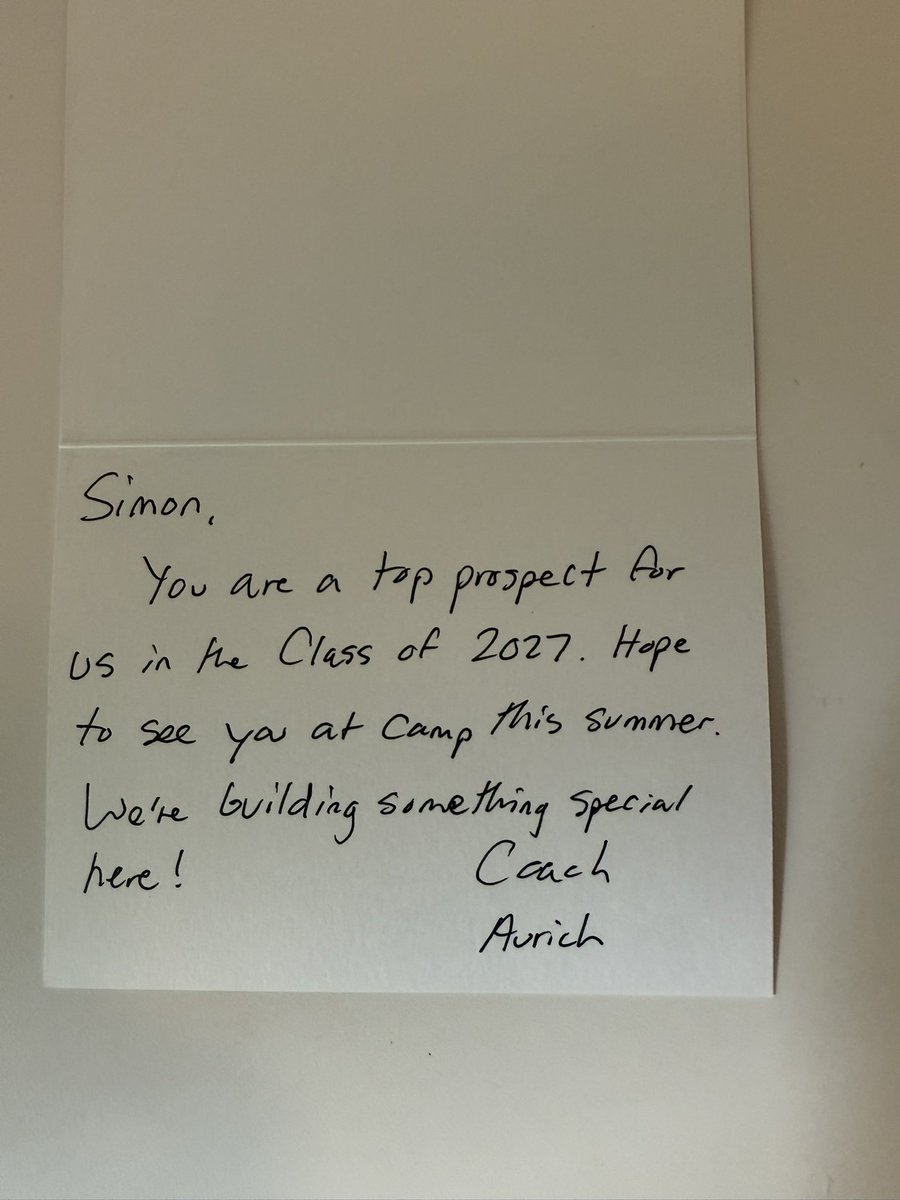 Simon,
You are a top prospect for
us in the Class of 2027. Hope
to see you at camp this summer.
We're building something special
here!
Coach
Aurich